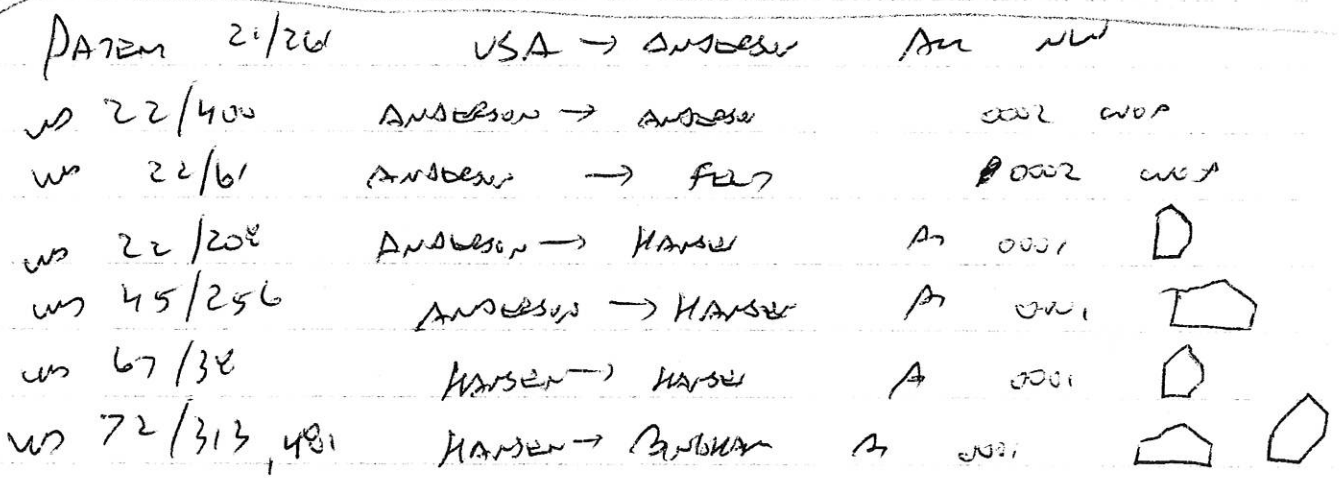 PATENT 21/261 USA → ANDERSON ALL NW
WD 22/400 ANDERSON → ANDERSON 0002
WD 22/61 ANDERSON → 0002
WD 22/208 ANDERSON → HANSEN 0001
WD 45/256 ANDERSON → HANSEN 0001
WD 67/38 HANSEN → HANSEN 0001
WD 72/313, 481 HANSEN → BINGHAM 0001